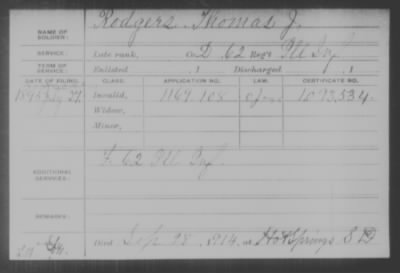 NAME OF SOLDIER: Rodgers, Thomas J.
SERVICE: Late rank, Co. D, 62 Reg't Ill Inf.
TERM OF SERVICE: Enlisted , 1 Discharged , 1
DATE OF FILING. CLASS. APPLICATION NO. LAW. CERTIFICATE NO.
Invalid, 1169 108 1093,534.
Widow,
Minor,
ADDITIONAL SERVICES: F. 62 Ill Inf.
REMARKS:
Died Sep 28, 1914, at Hot Springs S D